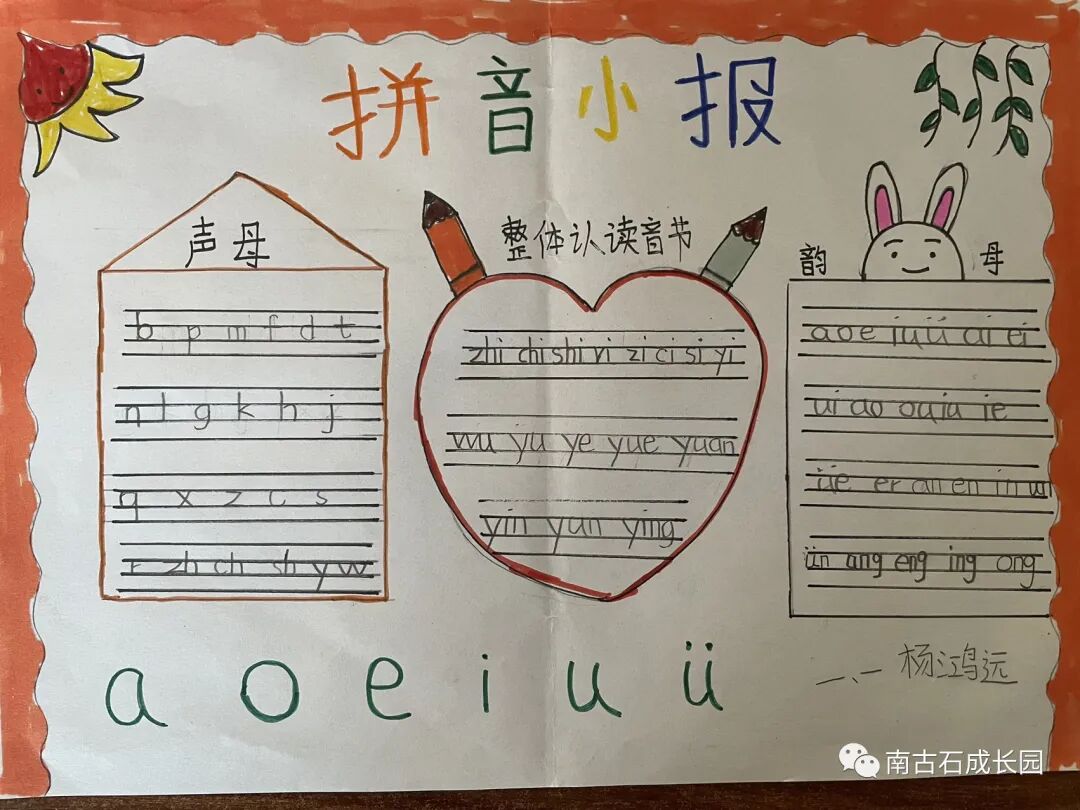 拼音小报
声母
b p m f d t
n l g k h j
q x z c s
r zh ch sh y w
整体认读音节
zhi chi shi ri zi ci si yi
wu yu ye yue yuan
yin yun ying
韵母
a o e i u ü ai ei
ui ao ou iu ie
üe er an en in un
ün ang eng ing ong
a o e i u ü
一、一 杨鸿远
南古石成长园